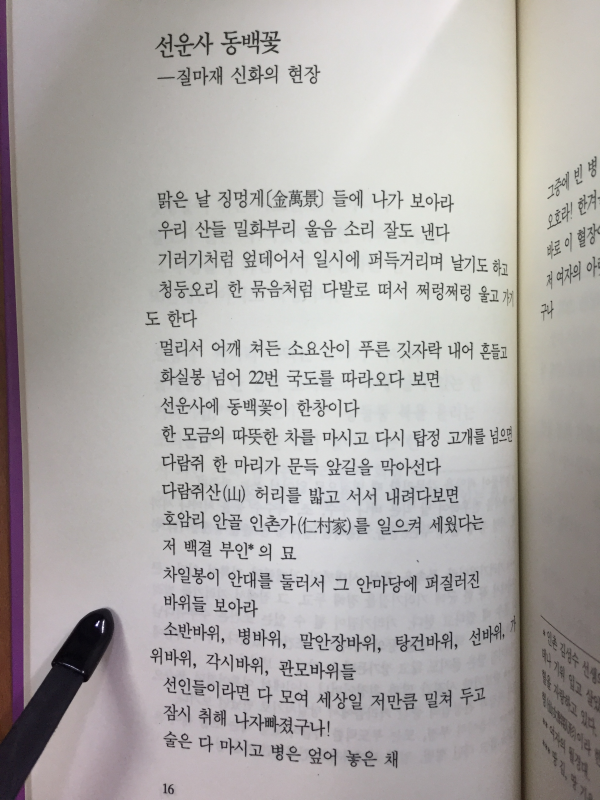 선운사 동백꽃
―질마재 신화의 현장
맑은 날 징멍게〔金萬景〕 들에 나가 보아라
우리 산들 밀화부리 울음 소리 잘도 낸다
기러기처럼 엎데어서 일시에 퍼득거리며 날기도 하고
청둥오리 한 묶음처럼 다발로 떠서 쩌렁쩌렁 울고 가기
도 한다
멀리서 어깨 쳐든 소요산이 푸른 깃자락 내어 흔들고
화실봉 넘어 22번 국도를 따라오다 보면
선운사에 동백꽃이 한창이다
한 모금의 따뜻한 차를 마시고 다시 탑정 고개를 넘으면
다람쥐 한 마리가 문득 앞길을 막아선다
다람쥐산(山) 허리를 밟고 서서 내려다보면
호암리 안골 인촌가(仁村家)를 일으켜 세웠다는
저 백결 부인*의 묘
차일봉이 안대를 둘러서 그 안마당에 퍼질러진
바위들 보아라
소반바위, 병바위, 말안장바위, 탕건바위, 선바위, 가
위바위, 각시바위, 관모바위들
선인들이라면 다 모여 세상일 저만큼 밀쳐 두고
잠시 취해 나자빠졌구나!
술은 다 마시고 병은 엎어 놓은 채
16
그중에 빈 병
오호라! 한겨
바로 이 혈장
저 여자의 아
구나